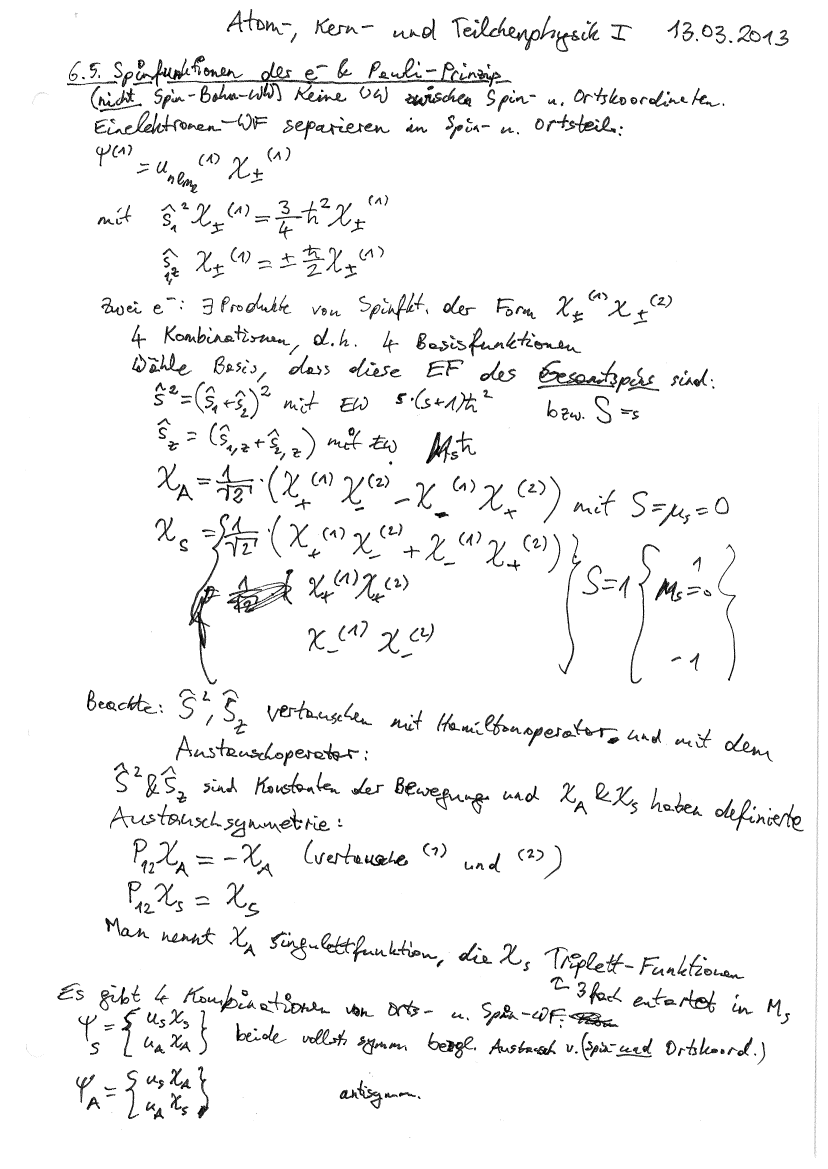 Atom-, Kern- und Teilchenphysik I 13.03.2013
6.5. Spinfunktionen des e⁻ & Pauli-Prinzip
(nicht Spin-Bahn-WW) Keine WW zwischen Spin- u. Ortskoordinaten.
Einelektronen-WF separieren in Spin- u. Ortsteil:
Ψ⁽¹⁾ = u_{nlm_l}⁽¹⁾ χ_±⁽¹⁾
mit ŝ₁² χ_±⁽¹⁾ = 3/4 ħ² χ_±⁽¹⁾
ŝ_{1,z} χ_±⁽¹⁾ = ± ħ/2 χ_±⁽¹⁾
Zwei e⁻: ∃ Produkte von Spinfkt. der Form χ_±⁽¹⁾ χ_±⁽²⁾
4 Kombinationen, d.h. 4 Basisfunktionen
Wähle Basis, dass diese EF des Gesamtspins sind:
Ŝ² = (ŝ₁ + ŝ₂)² mit EW s·(s+1)ħ² bzw. S = s
Ŝ_z = (ŝ_{1,z} + ŝ_{2,z}) mit EW M_s ħ
χ_A = 1/√2 · (χ_+⁽¹⁾ χ_-⁽²⁾ - χ_-⁽¹⁾ χ_+⁽²⁾) mit S = μ_s = 0
χ_S = { 1/√2 · (χ_+⁽¹⁾ χ_-⁽²⁾ + χ_-⁽¹⁾ χ_+⁽²⁾) }
χ_+⁽¹⁾ χ_+⁽²⁾ } S = 1 { M_s = 1 0 -1 }
χ_-⁽¹⁾ χ_-⁽²⁾
Beachte: Ŝ², Ŝ_z vertauschen mit Hamiltonoperator, und mit dem
Austauschoperator:
Ŝ² & Ŝ_z sind Konstanten der Bewegung und χ_A & χ_S haben definierte
Austauschsymmetrie:
P₁₂ χ_A = -χ_A (vertausche ⁽¹⁾ und ⁽²⁾)
P₁₂ χ_S = χ_S
Man nennt χ_A Singulettfunktion, die χ_S Triplett-Funktionen
3fach entartet in M_s
Es gibt 4 Kombinationen von Orts- u. Spin-WF:
Ψ_S = { u_S χ_S u_A χ_A } beide vollst. symm. bezgl. Austausch v. (Spin- und Ortskoord.)
Ψ_A = { u_S χ_A u_A χ_S } antisymm.